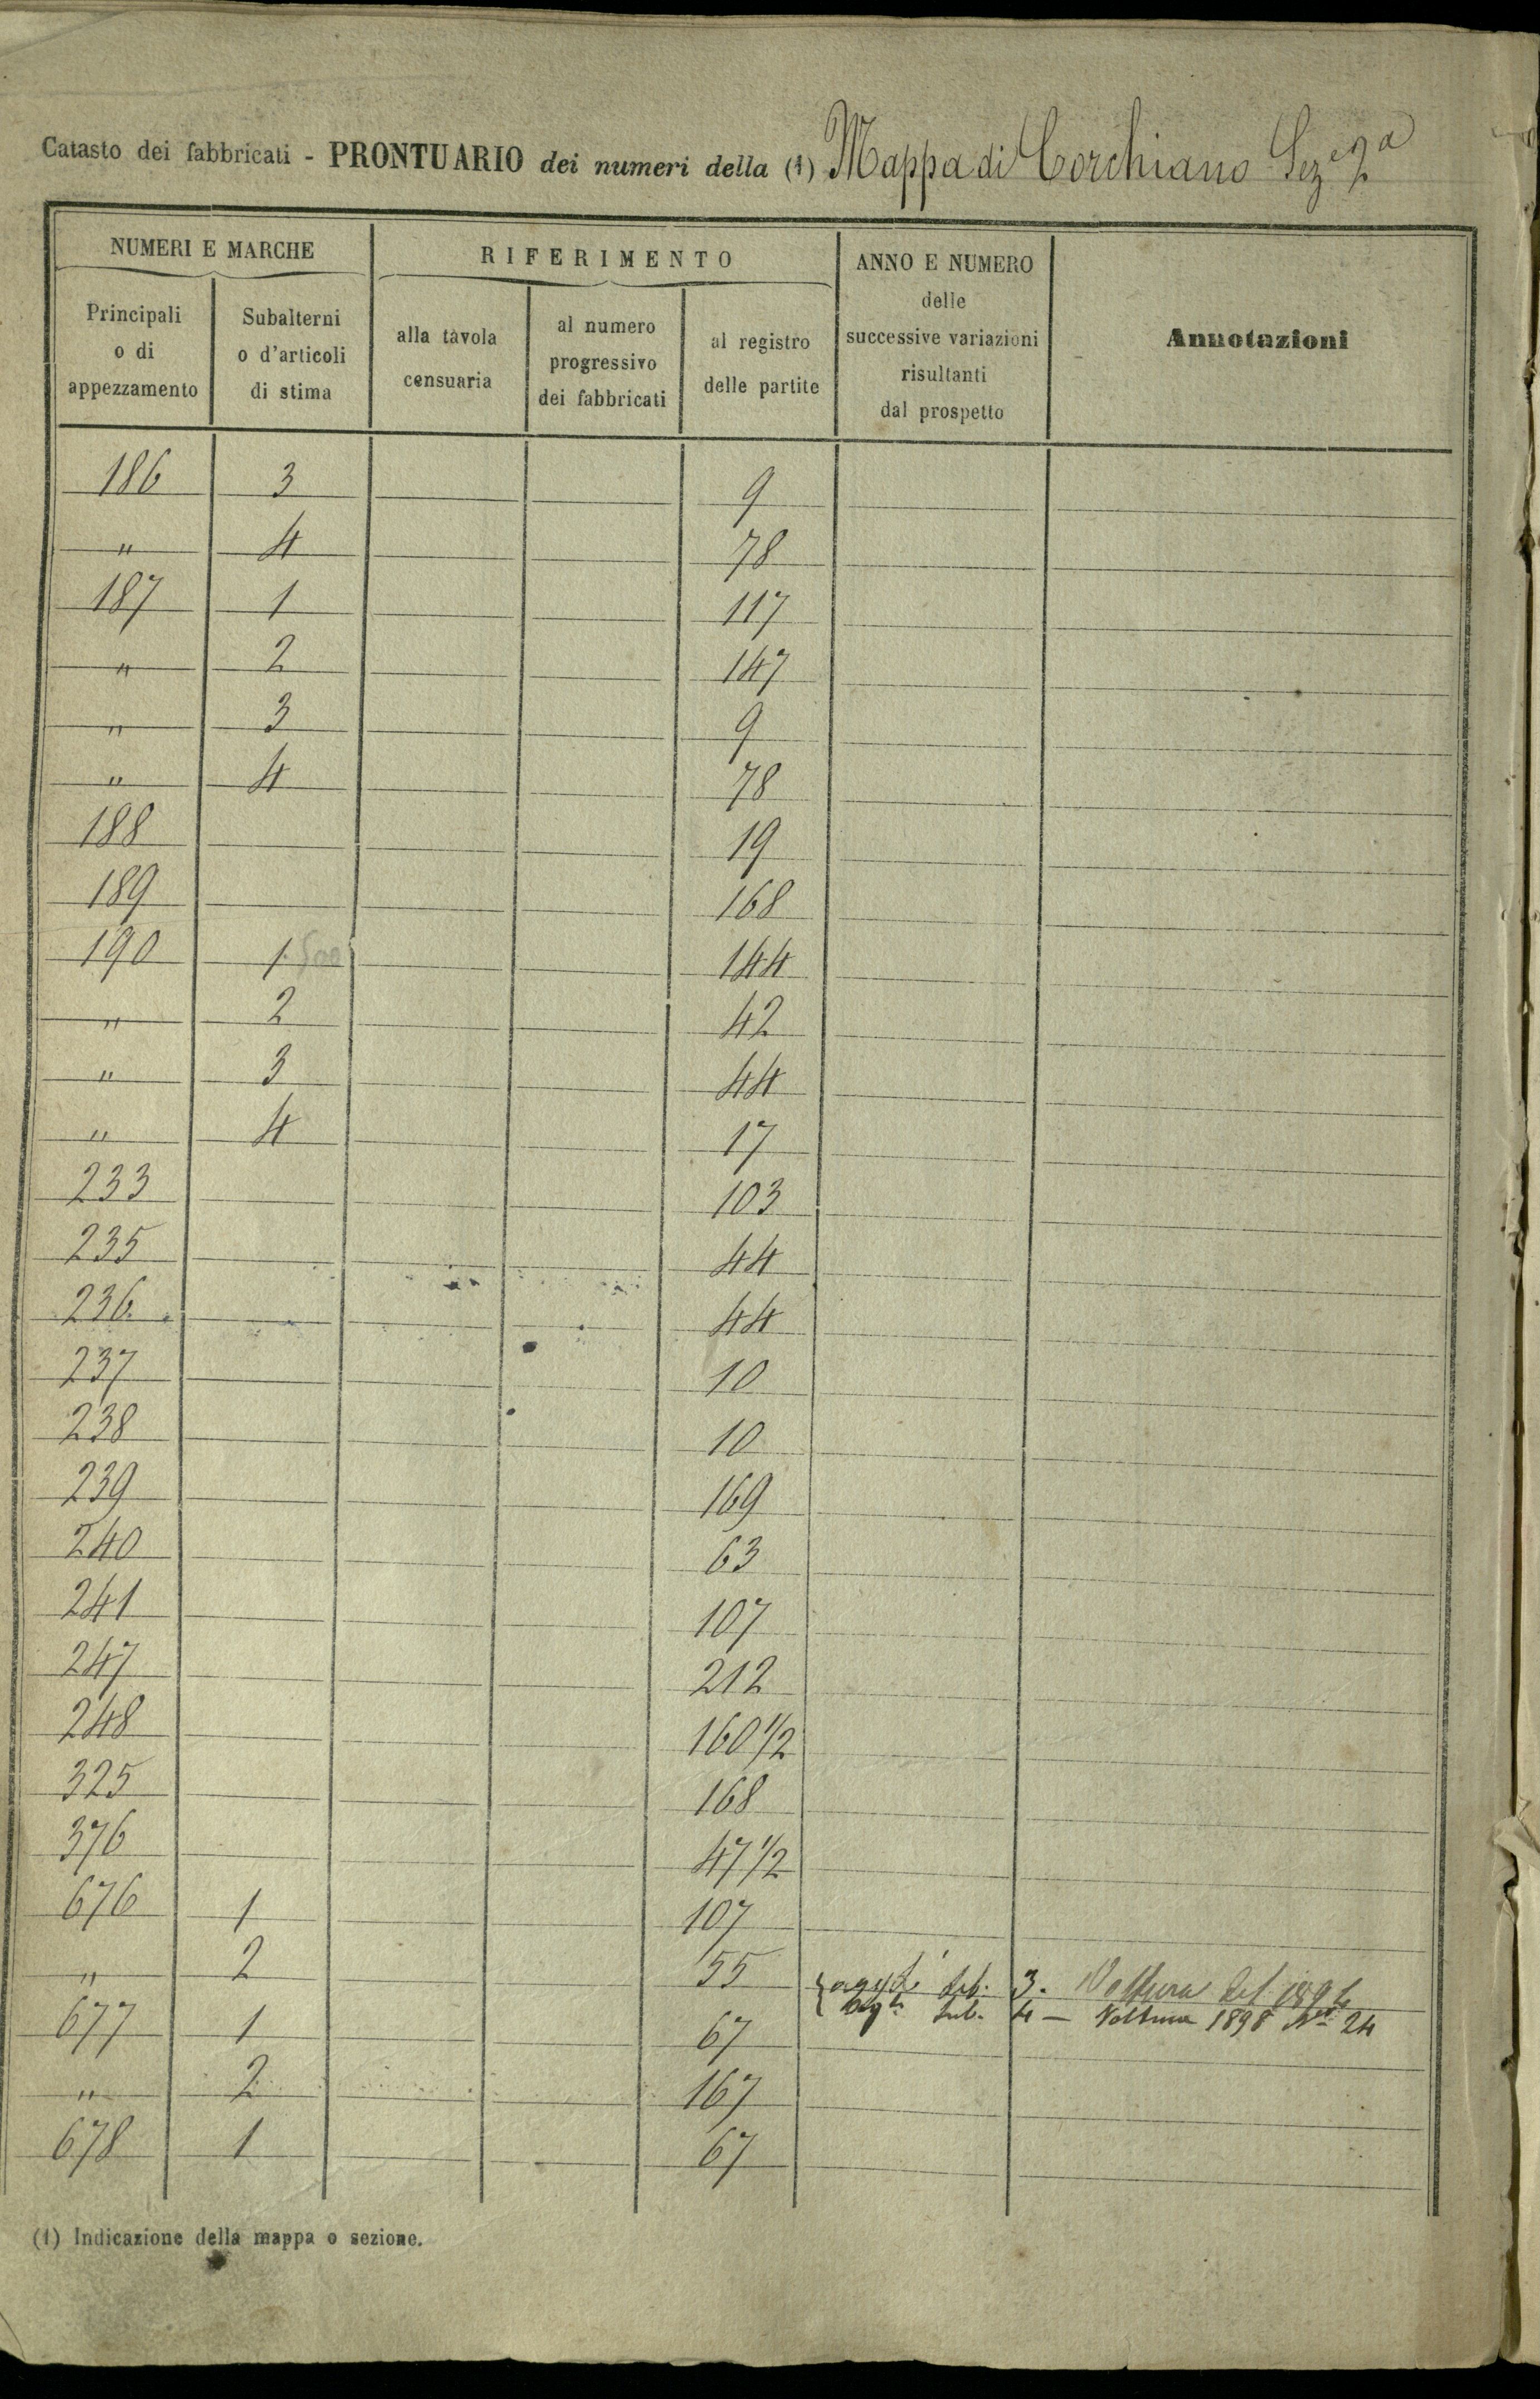 Catasto dei fabbricati - PRONTUARIO dei numeri della (1) Mappa di Corchiano Sez.e 2a
NUMERI E MARCHE
RIFERIMENTO
ANNO E NUMERO
delle
successive variazioni
risultanti
dal prospetto
Annotazioni
Principali
o di
appezzamento
Subalterni
o d'articoli
di stima
alla tavola
censuaria
al numero
progressivo
dei fabbricati
al registro
delle partite
186 3 9
" 4 78
187 1 117
" 2 147
" 3 9
" 4 78
188 19
189 168
190 1 144
" 2 42
" 3 44
" 4 17
233 103
235 44
236 44
237 10
238 10
239 169
240 63
241 107
247 212
248 160 1/2
325 168
376 47 1/2
676 1 107
" 2 55 Sub. 3. Voltura del 1894
Sub. 4 — Voltura 1898 No 24
677 1 67
" 2 167
678 1 67
(1) Indicazione della mappa o sezione.